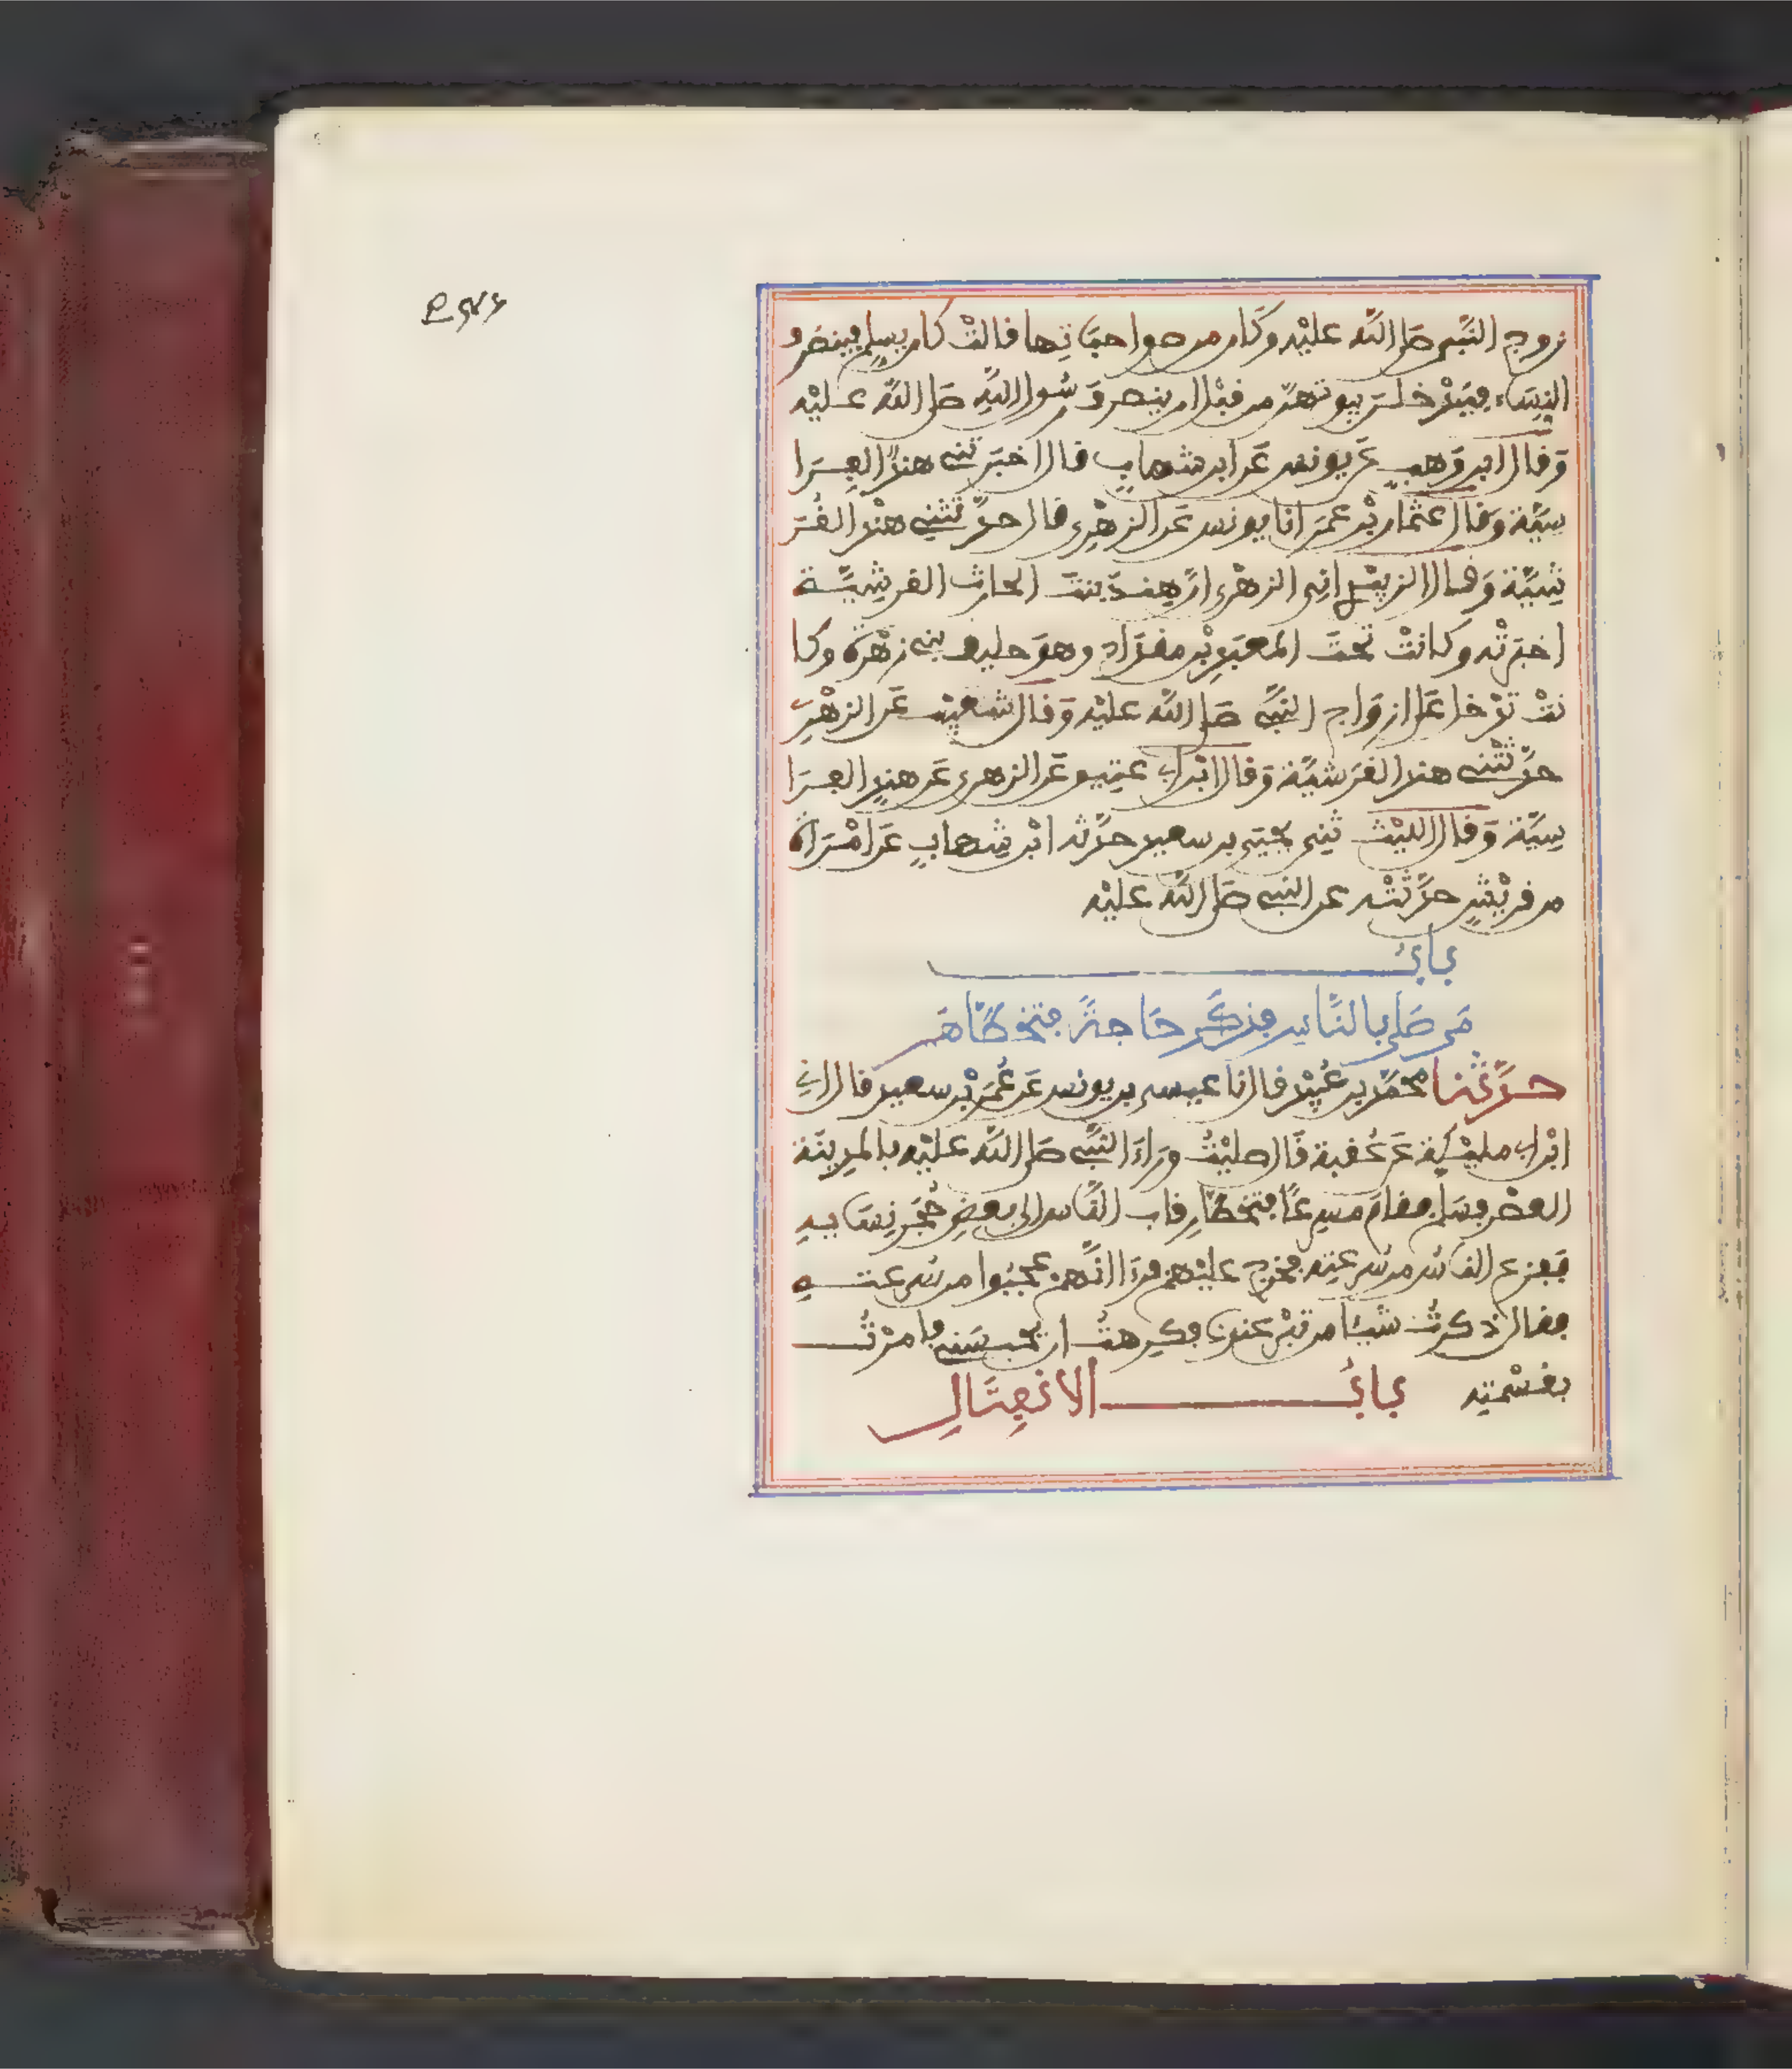 زوج النبي صلى الله عليه وكان من صواحباتها قالت كان يسلم فينصرف
النساء فيدخلن بيوتهن من قبل ان ينصرف رسول الله صلى الله عليه
وقال ابن وهب عن يونس عن ابن شهاب قال اخبرتني هند الفرا
سية وقال عثمان بن عمر انا يونس عن الزهري قال حدثتني هند القر
شية وقال الزبيدي اني الزهري ان هند بنت الحارث القرشية
اخبرته وكانت تحت المعبد بن مقداد وهو حليف بني زهرة وكا
نت تدخل على ازواج النبي صلى الله عليه وقال شعيب عن الزهري
حدثتني هند القرشية وقال ابن ابي عتيق عن الزهري عن هند الفرا
سية وقال الليث ثني يحيى بن سعيد حدثه ابن شهاب عن امراة
من قريش حدثته عن النبي صلى الله عليه
باب
من صلى بالناس فذكر حاجة فتخطاهم
حدثنا محمد بن عبيد قال انا عيسى بن يونس عن عمر بن سعيد قال اني
ابن ابي مليكة عن عقبة قال صليت وراء النبي صلى الله عليه بالمدينة
العصر فسلم فقام مسرعا فتخطا رقاب الناس الى بعض حجر نسايه
ففزع الناس من سرعته فخرج عليهم فرءا انهم عجبوا من سرعته
فقال ذكرت شيئا من تبر عندنا فكرهت ان يحبسني فامرت
بقسمته باب الانفتال